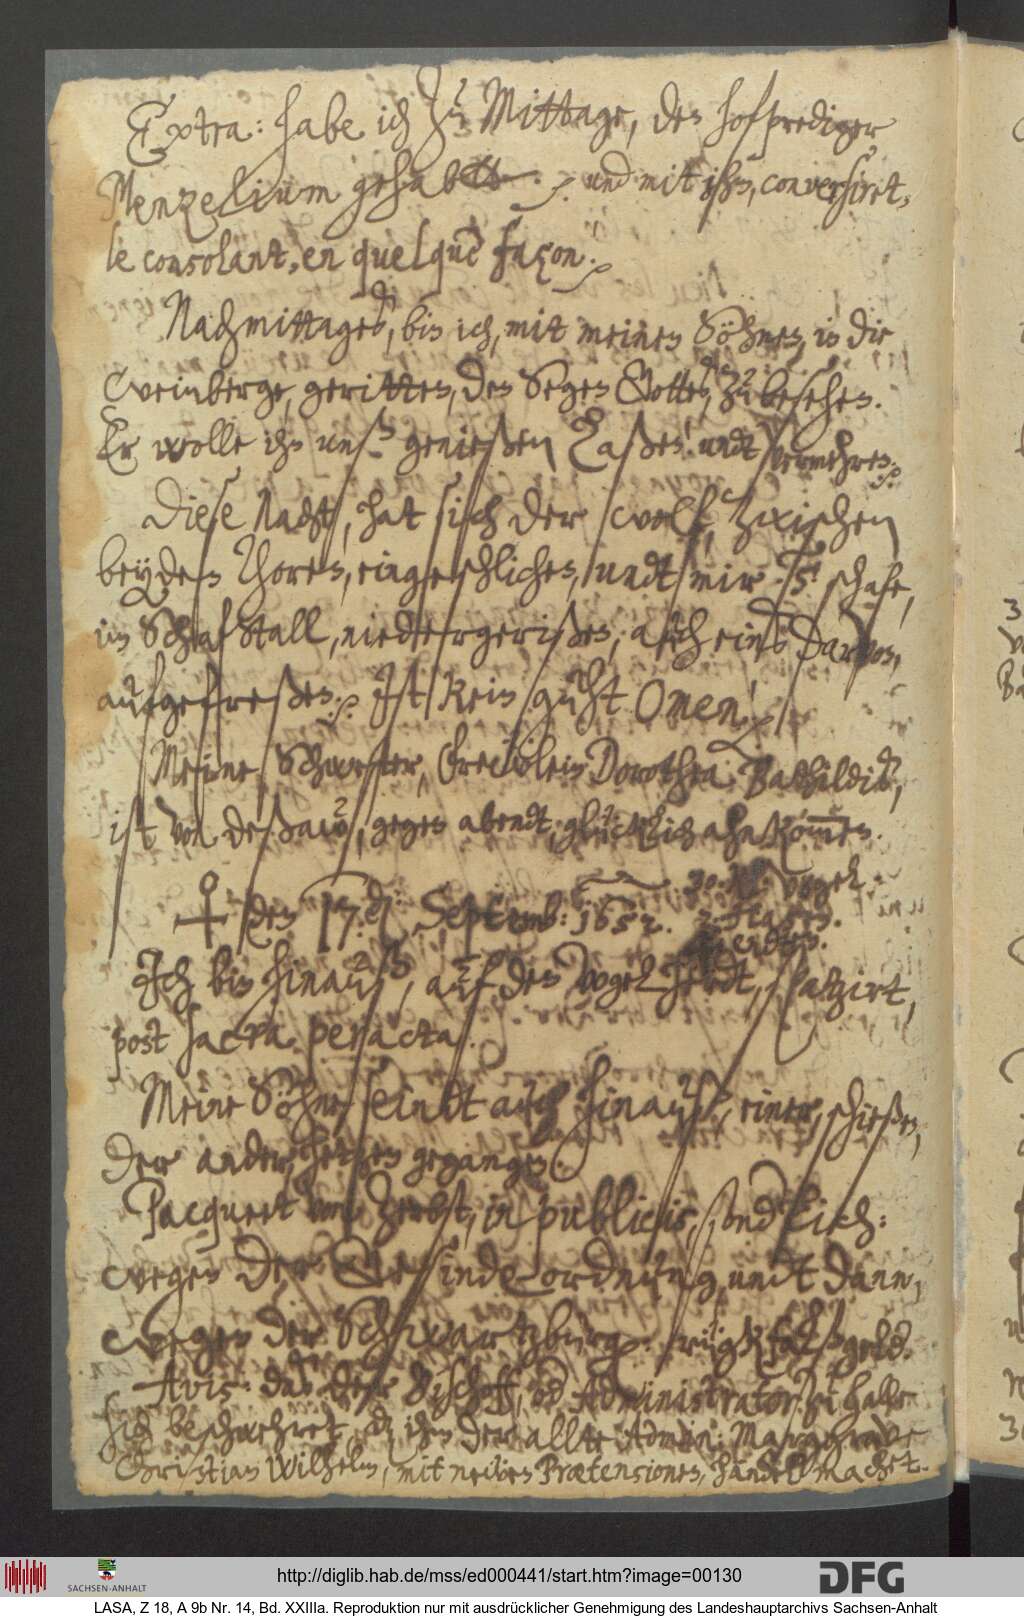 Extra: habe ich zu Mittage, den hofprediger
Menzelium gehabtt. und mit ihm, conversiret,
le consolant, en quelque façon.
Nachmittages, bin ich, mit meinen Söhnen, in die
weinberge, geritten, den Segen Gottes, zu besehen.
Er wolle ihn unß genießen laßen! undt vermehren.
Diese Nacht, hat sich der wolf, zwischen
beyden Thoren, eingeschlichen, undt mir 5 schafe,
im Schafstall, niedergerißen, auch eins darvon,
aufgefreßen. Ist kein guht Omen!
Meine Schwester, Frewlein Dorothea Bathildis,
ist von Deßaw, gegen abendt, glücklich ahnkommen.
den 17. Septemb: 1652.
vogel
Ich bin hinauß, auf den vogelherdt, spatzirt,
post sacra peracta.
Meine Söhne seindt auch hinauß, einer, schießen,
der ander, hetzen gegangen.
Pacquett von Zerbst, in publicis, sonderlich:
wegen der Gesindeordnung, undt dann,
wegen der Schwartzburg:
Avis: daß der Bischoff, od Administrator zu halle
sich beschwehret, daß ihm der allte Admin: Marggrave
Christian Wilhelm, mit newen Praetensionen, händel machet.
http://diglib.hab.de/mss/ed000441/start.htm?image=00130
SACHSEN-ANHALT
DFG
LASA, Z 18, A 9b Nr. 14, Bd. XXIIIa. Reproduktion nur mit ausdrücklicher Genehmigung des Landeshauptarchivs Sachsen-Anhalt